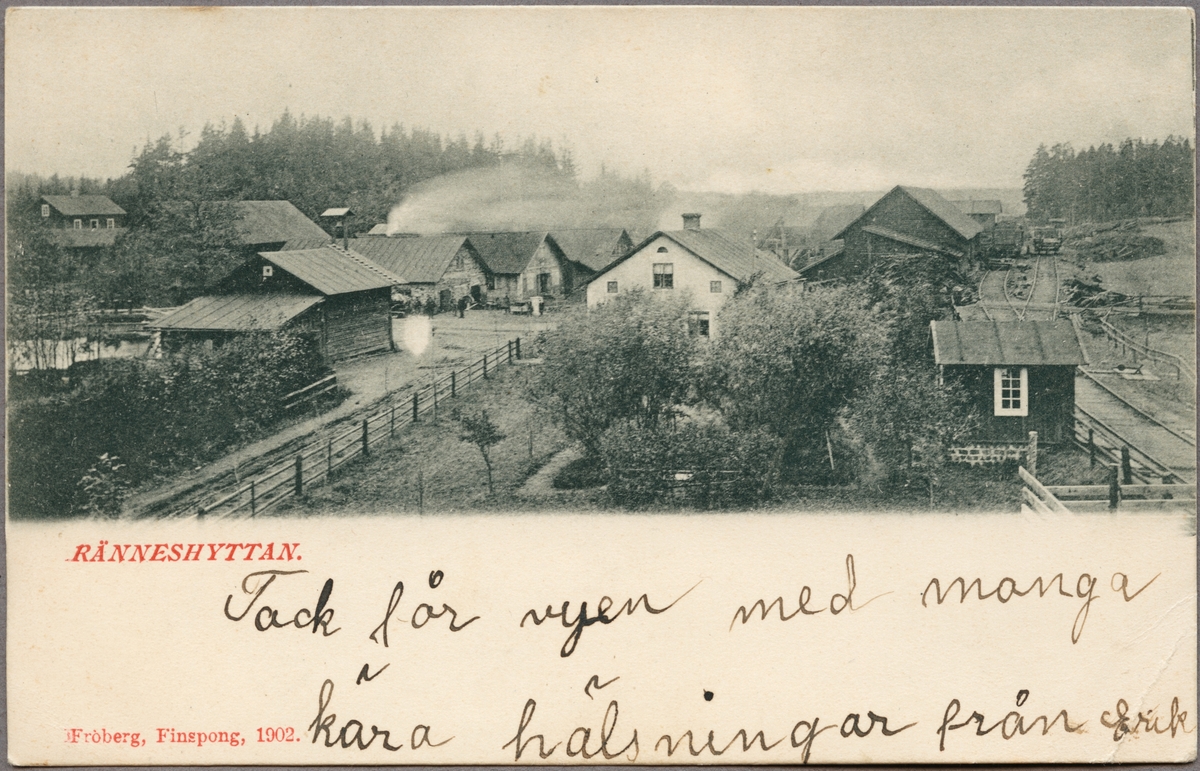 RÄNNESHYTTAN.
Tack får vyen med manga
kära hälsningar från Erik
Fröberg, Finspong, 1902.